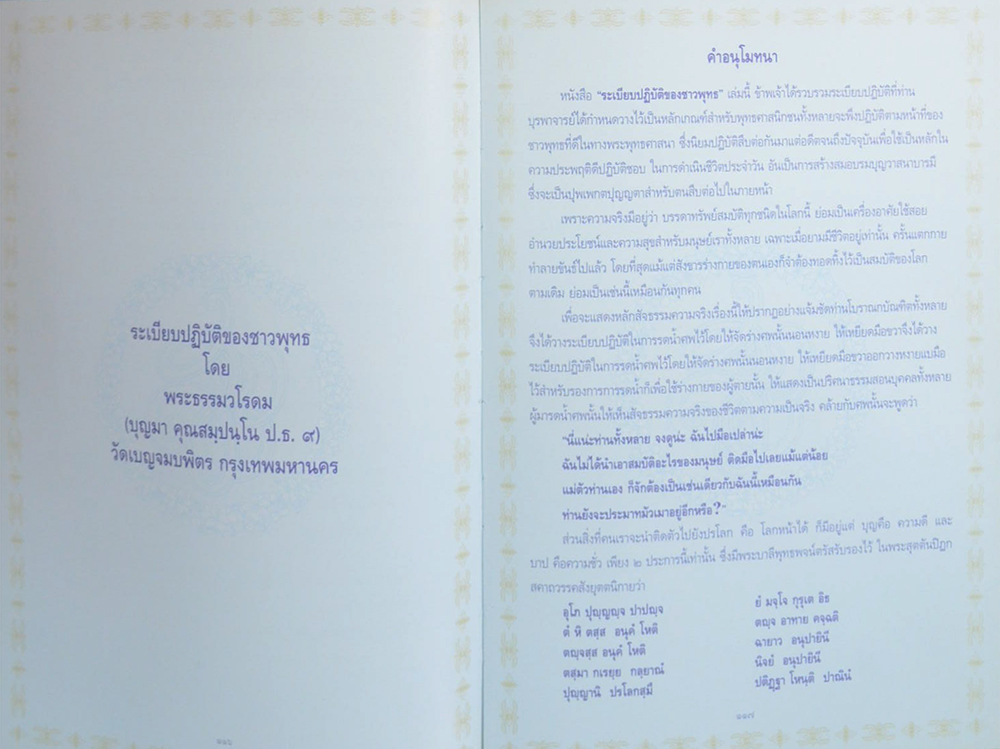 ระเบียบปฏิบัติของชาวพุทธ
โดย
พระธรรมวโรดม
(บุญมา คุณสมฺปนฺโน ป.ธ. ๙)
วัดเบญจมบพิตร กรุงเทพมหานคร
๑๑๖
คำอนุโมทนา
หนังสือ "ระเบียบปฏิบัติของชาวพุทธ" เล่มนี้ ข้าพเจ้าได้รวบรวมระเบียบปฏิบัติที่ท่าน
บุรพาจารย์ได้กำหนดวางไว้เป็นหลักเกณฑ์สำหรับพุทธศาสนิกชนทั้งหลายจะพึงปฏิบัติตามหน้าที่ของ
ชาวพุทธที่ดีในทางพระพุทธศาสนา ซึ่งนิยมปฏิบัติสืบต่อกันมาแต่อดีตจนถึงปัจจุบันเพื่อใช้เป็นหลักใน
ความประพฤติดีปฏิบัติชอบ ในการดำเนินชีวิตประจำวัน อันเป็นการสร้างสมอบรมบุญวาสนาบารมี
ซึ่งจะเป็นปุพเพกตปุญญตาสำหรับตนสืบต่อไปในภายหน้า
เพราะความจริงมีอยู่ว่า บรรดาทรัพย์สมบัติทุกชนิดในโลกนี้ ย่อมเป็นเครื่องอาศัยใช้สอย
อำนวยประโยชน์และความสุขสำหรับมนุษย์เราทั้งหลาย เฉพาะเมื่อยามมีชีวิตอยู่เท่านั้น ครั้นแตกกาย
ทำลายขันธ์ไปแล้ว โดยที่สุดแม้แต่สังขารร่างกายของตนเองก็จำต้องทอดทิ้งไว้เป็นสมบัติของโลก
ตามเดิม ย่อมเป็นเช่นนี้เหมือนกันทุกคน
เพื่อจะแสดงหลักสัจธรรมความจริงเรื่องนี้ให้ปรากฏอย่างแจ้มชัดท่านโบราณกบัณฑิตทั้งหลาย
จึงได้วางระเบียบปฏิบัติในการรดน้ำศพไว้โดยให้จัดร่างศพนั้นนอนหงาย ให้เหยียดมือขวาจึงได้วาง
ระเบียบปฏิบัติในการรดน้ำศพไว้โดยให้จัดร่างศพนั้นนอนหงาย ให้เหยียดมือขวาออกวางหงายแบมือ
ไว้สำหรับรองการการรดน้ำก็เพื่อใช้ร่างกายของผู้ตายนั้น ให้แสดงเป็นปริศนาธรรมสอนบุคคลทั้งหลาย
ผู้มารดน้ำศพนั้นให้เห็นสัจธรรมความจริงของชีวิตตามความเป็นจริง คล้ายกับศพนั้นจะพูดว่า
"นี่แน่ะท่านทั้งหลาย จงดูน่ะ ฉันไปมือเปล่าน่ะ
ฉันไม่ได้นำเอาสมบัติอะไรของมนุษย์ ติดมือไปเลยแม้แต่น้อย
แม่ตัวท่านเอง ก็จักต้องเป็นเช่นเดียวกับฉันนี้เหมือนกัน
ท่านยังจะประมาทมัวเมาอยู่อีกหรือ?"
ส่วนสิ่งที่คนเราจะนำติดตัวไปยังปรโลก คือ โลกหน้าได้ ก็มีอยู่แต่ บุญคือ ความดี และ
บาป คือความชั่ว เพียง ๒ ประการนี้เท่านั้น ซึ่งมีพระบาลีพุทธพจน์ตรัสรับรองไว้ ในพระสุตตันปิฎก
สคาถวรรคสังยุตตนิกายว่า
อุโภ ปุญฺญญฺจ ปาปญฺจ ยํ มจฺโจ กุรุเต อิธ
ตํ หิ ตสฺส อนุคํ โหติ ตญฺจ อาทาย คจฺฉติ
ตญฺจสฺส อนุคํ โหติ ฉายาว อนุปายินี
ตสฺมา กเรยฺย กลฺยาณํ นิจยํ อนุปายินี
ปุญฺญานิ ปรโลกสฺมึ ปติฏฺฐา โหนฺติ ปาณินํ
๑๑๗